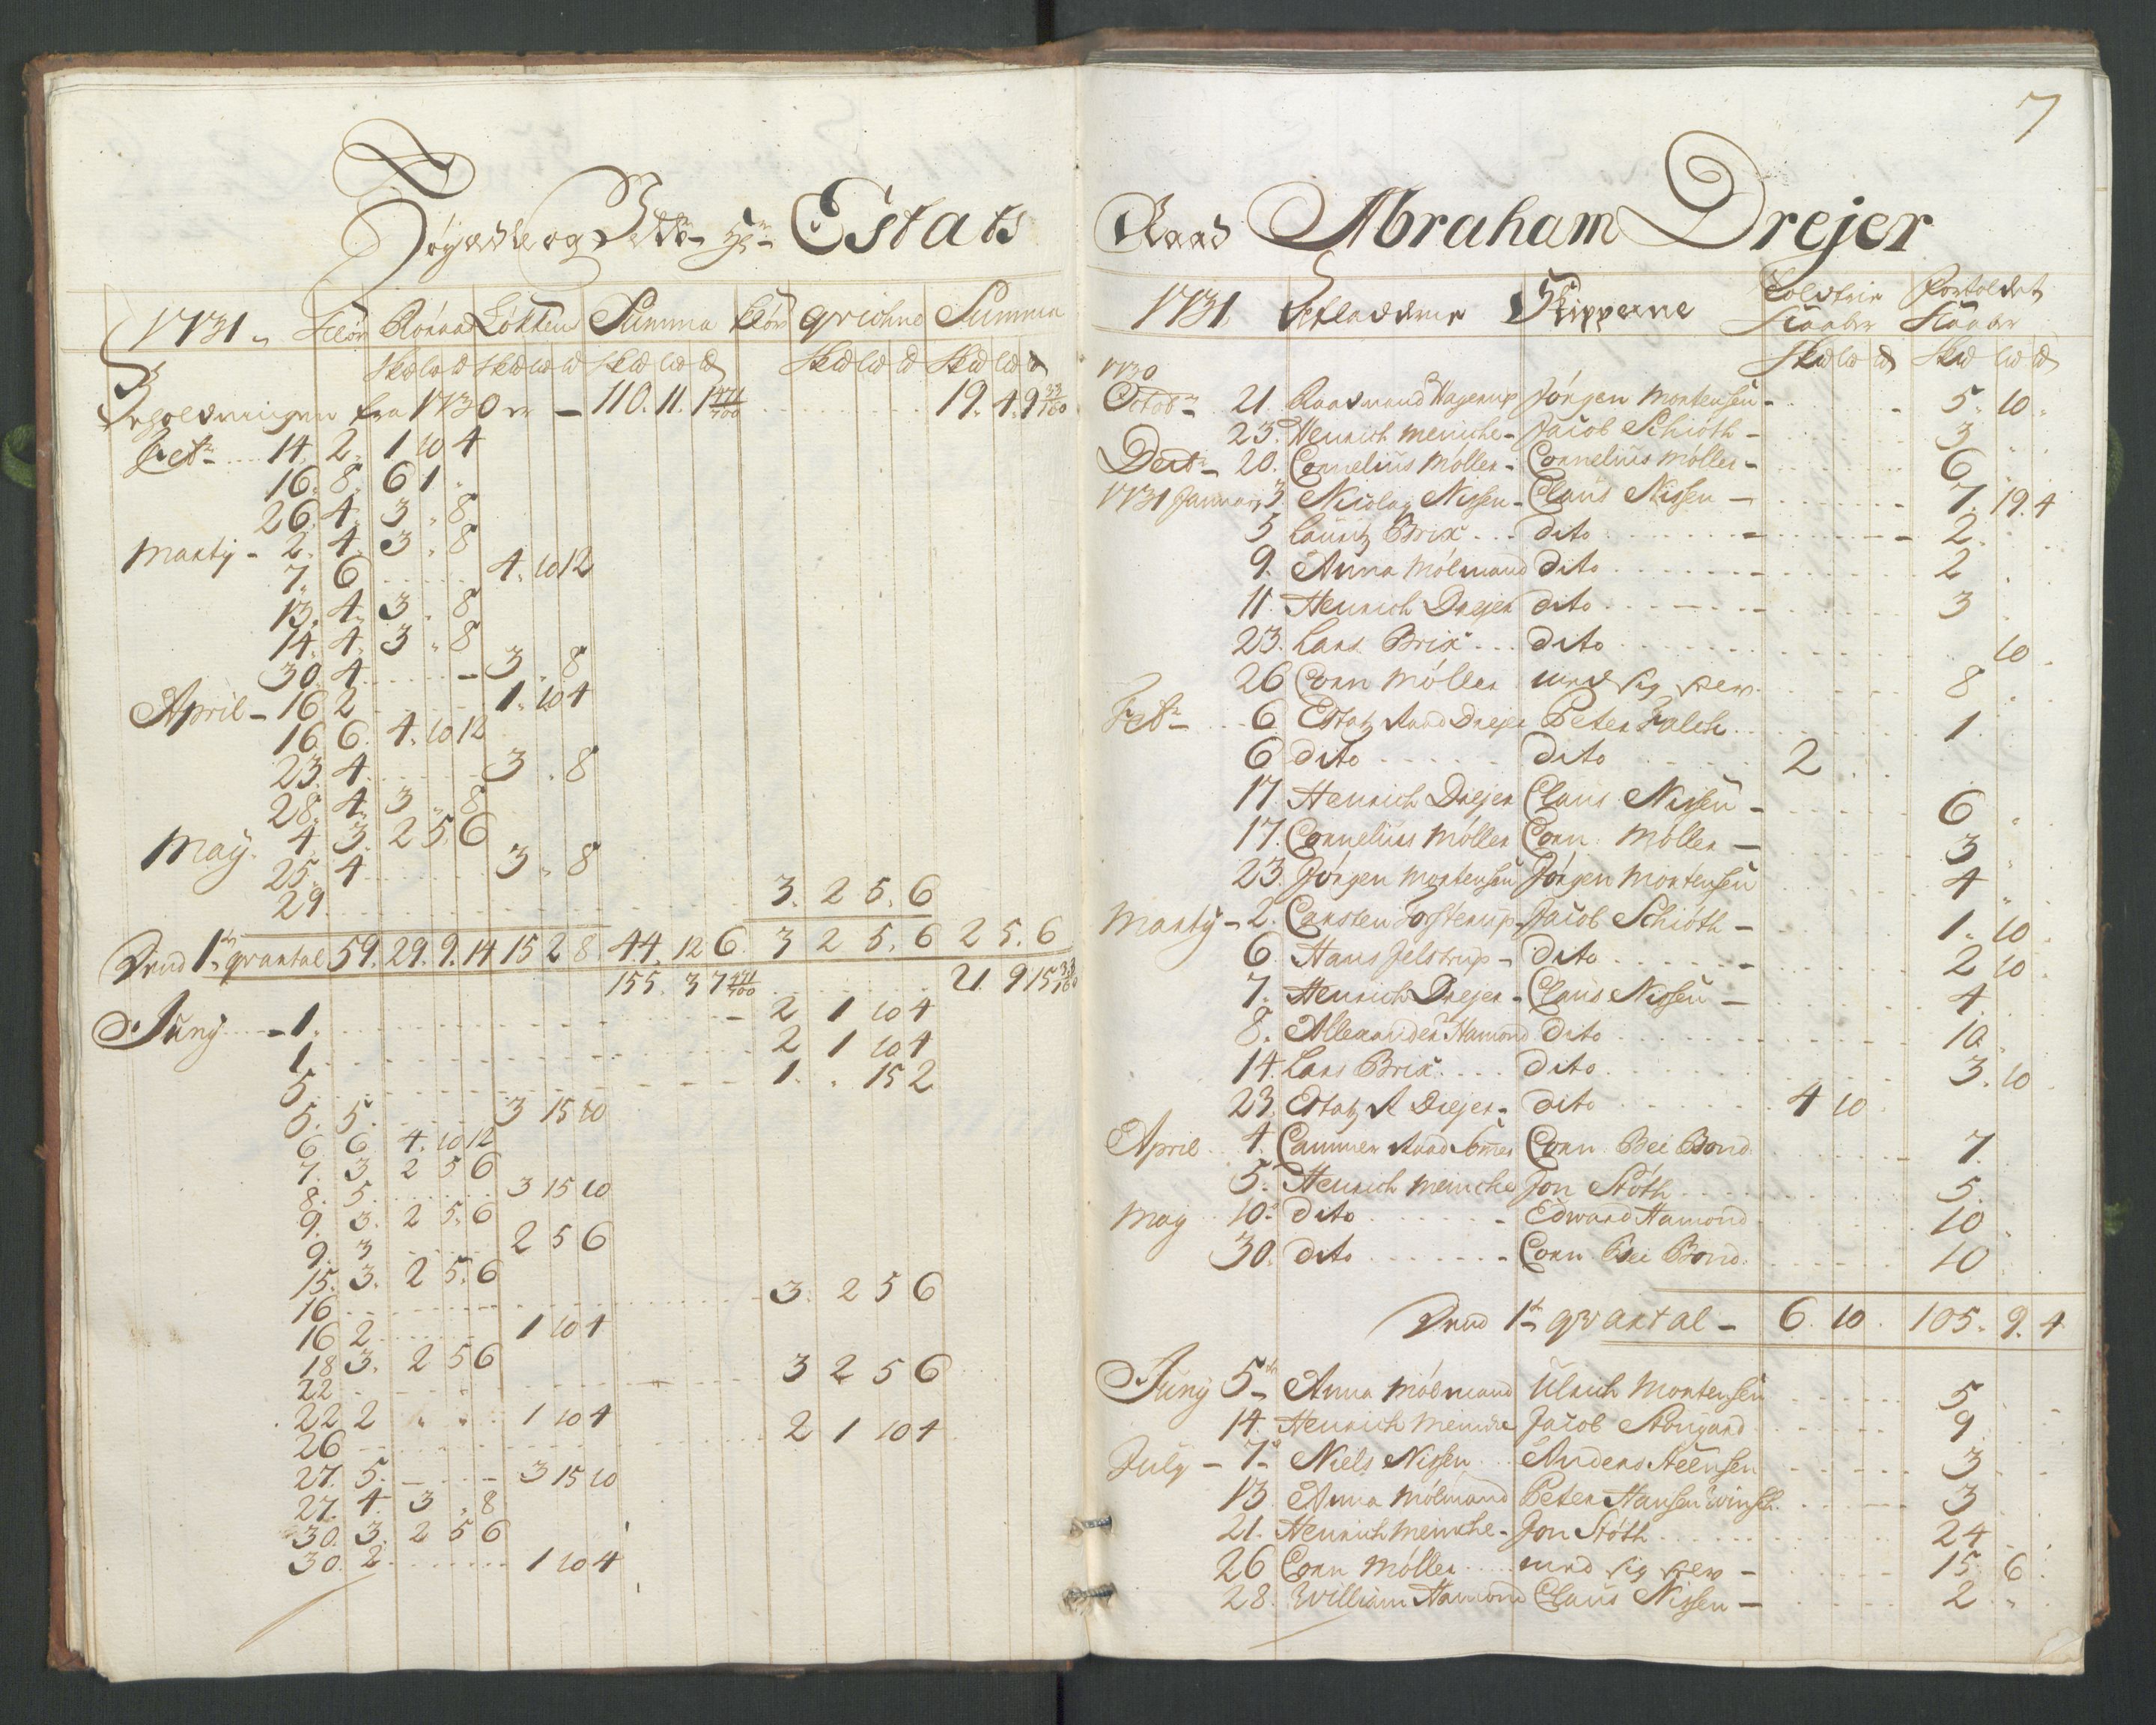 7
Estats
Raad Abraham Drejer
1731. Kiór Róraa Lókken Summa Kiór qrichne Summa
Skd ld d Skd ld d Skd ld d Skd ld d Skd ld d
fra 1730 110. 11. 1 471/700 19. 4. 9 33/100
14. 2. 1 10 4
16. 8. 6 1
26. 4. 3 . 8
Martij - 2. 4. 3 . 8
7. 6 4. 10 12
13. 4. 3 . 8
14. 4. 3 . 8
30. 4 3 . 8
April - 16 2 1. 10 4
16 6. 4. 10 12
23. 4 3 . 8
28. 4. 3 . 8
May. 4 3. 2 5. 6
25. 4 3 . 8
29. 3. 2 5. 6
1te qvartal 59. 29. 9. 14 15 2 8 44. 12 6. 3 2 5. 6 2 5. 6
155. 3 7 471/700 21. 9 15 33/100
Junij - 1. 2 1 10 4
1. 2 1 10 4
5. 1. . 15 2
5. 5. 3 15 10
6 6 4. 10 12
7. 3 2 5 6
8. 5. 3 15 10
9. 3. 2 5. 6
9. 3 2 5 6
15. 3. 2 5. 6
16 3. 2 5 6
16 2 1 10 4
18 3. 2 5 6
22 3 2 5 6
22 2 1 10 4
26 2 1 10 4
27. 5. 3 15 10
27. 4. 3 . 8
30. 3. 2 5 6
30. 2 1 10 4
1731. Skipperne
Skd ld d Skd ld d
1730
Octob 21 Raadmand Hagerup Jórgen Mortensen - 5. 10.
23. Henrich Meinche - Jacob Schióth - 3
Dect - 20. Cornelius Móller - Cornelius Móller - 6
1731 Januarij 3. Nicolay Nissen - Claus Nissen - 7. 19. 4
5 Lauritz Brix dito 2
9. Anna Mólmand dito 2
11. Henrich Drejer dito 3
23. Lars Brix dito 10
26 Corn Móller med sig selv 8
Feb - 6. Etatz Raad Drejer Peter Falch 1
6 dito dito 2
17. Henrich Drejer Claus Nissen - 6
17. Cornelius Móller Corn. Móller - 3
23. Jórgen Mortensen Jórgen Mortensen 4
Martij - 2. Carsten Forsterup Jacob Schióth - 1. 10
6. Hans Jelstrup - dito 2 10
7. Henrich Drejer - Claus Nissen - 4
8. Allexander Hamond dito 10
14. Lars Brix dito 3. 10
23. Etatz R Drejer - dito 4 10
April 4. Cammer Raad Corn Bei Bond 7.
5. Henrich Meinche Jon Stóth 5.
May 10. dito - Edward Hamond 10
30. dito - Corn Bei Bond. 10
1te qvartal - 6. 10. 105. 9. 4
Junij 5te Anna Mólmand Ulrich Mortensen 5
14. Henrich Meinche Jacob Stongard 9
July - 7. Niels Nissen Anders Steensen 3
13. Anna Mólmand Peter Hansen 3
21. Henrich Meinche - Jon Stóth 24
26 Corn Móller med sig selv - 15. 6
28. William Hamond Claus Nissen - 2